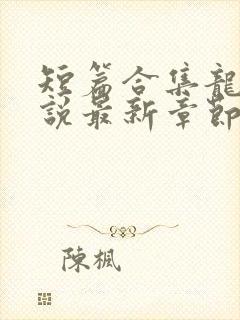 短篇合集龍
說最新章節
陳楓